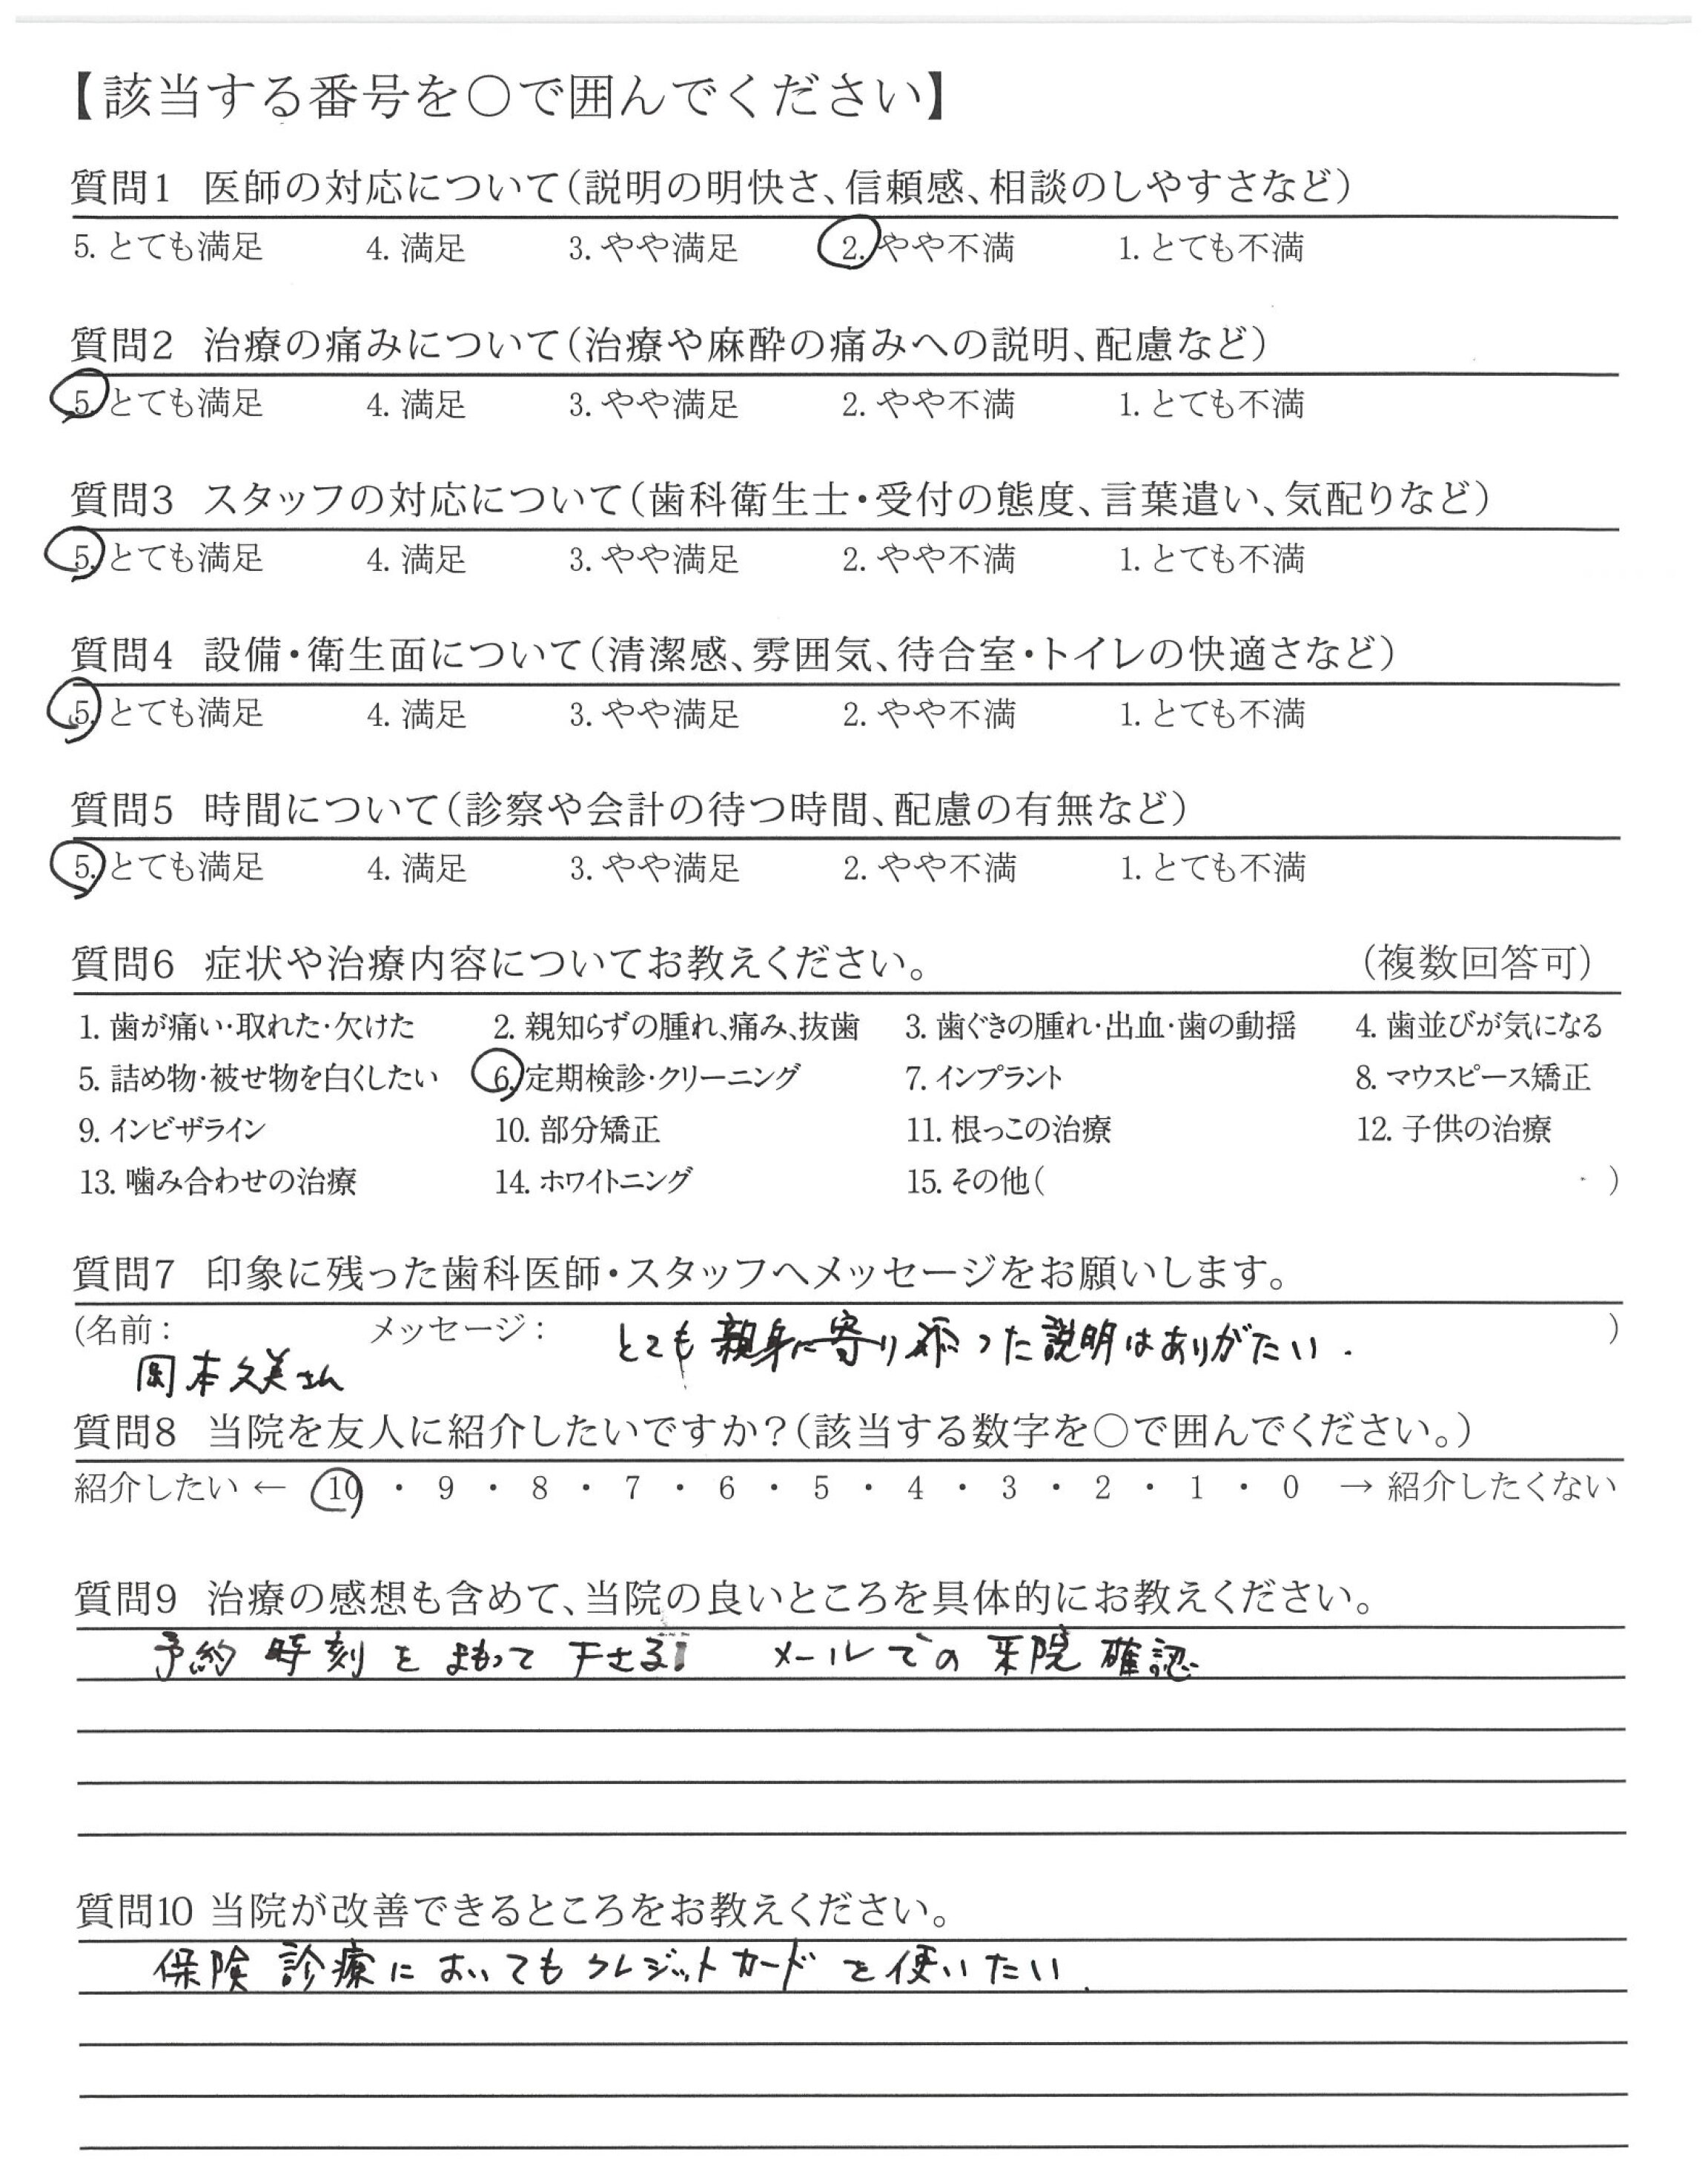 【該当する番号を○で囲んでください】
質問1 医師の対応について(説明の明快さ、信頼感、相談のしやすさなど)
5. とても満足 4. 満足 3. やや満足 2. やや不満 1. とても不満
質問2 治療の痛みについて(治療や麻酔の痛みへの説明、配慮など)
5. とても満足 4. 満足 3. やや満足 2. やや不満 1. とても不満
質問3 スタッフの対応について(歯科衛生士・受付の態度、言葉遣い、気配りなど)
5. とても満足 4. 満足 3. やや満足 2. やや不満 1. とても不満
質問4 設備・衛生面について(清潔感、雰囲気、待合室・トイレの快適さなど)
5. とても満足 4. 満足 3. やや満足 2. やや不満 1. とても不満
質問5 時間について(診察や会計の待つ時間、配慮の有無など)
5. とても満足 4. 満足 3. やや満足 2. やや不満 1. とても不満
質問6 症状や治療内容についてお教えください。 (複数回答可)
1. 歯が痛い・取れた・欠けた 2. 親知らずの腫れ、痛み、抜歯 3. 歯ぐきの腫れ・出血・歯の動揺 4. 歯並びが気になる
5. 詰め物・被せ物を白くしたい 6. 定期検診・クリーニング 7. インプラント 8. マウスピース矯正
9. インビザライン 10. 部分矯正 11. 根っこの治療 12. 子供の治療
13. 噛み合わせの治療 14. ホワイトニング 15. その他( )
質問7 印象に残った歯科医師・スタッフへメッセージをお願いします。
(名前: メッセージ: とても親身に寄り添った説明はありがたい. )
岡本久美さん
質問8 当院を友人に紹介したいですか?(該当する数字を○で囲んでください。)
紹介したい ← 10 ・ 9 ・ 8 ・ 7 ・ 6 ・ 5 ・ 4 ・ 3 ・ 2 ・ 1 ・ 0 → 紹介したくない
質問9 治療の感想も含めて、当院の良いところを具体的にお教えください。
予約時刻をまもって下さる メールでの来院確認
質問10 当院が改善できるところをお教えください。
保険診療においてもクレジットカードを使いたい.